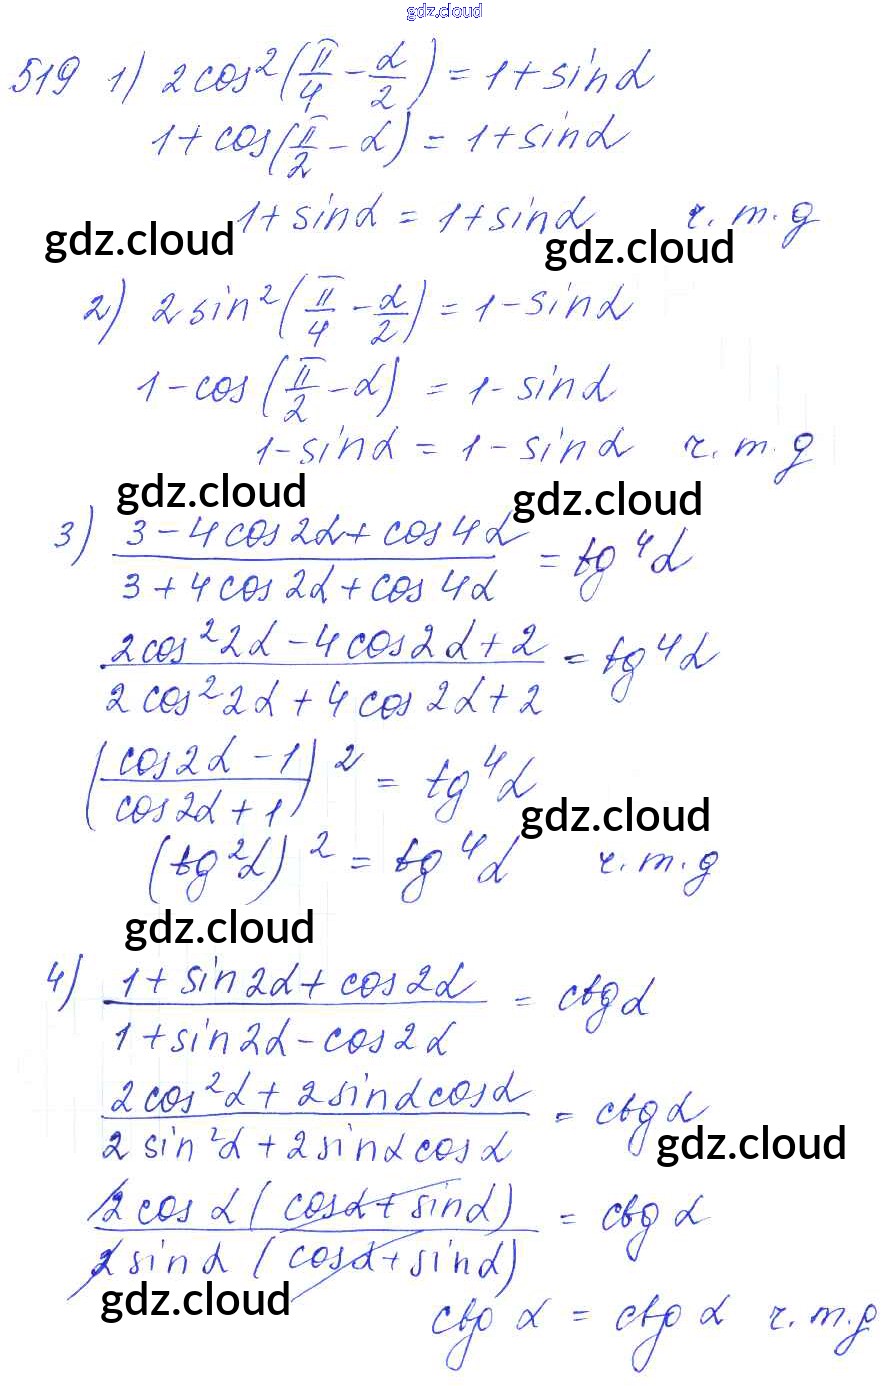 gdz.cloud
519 1) 2cos²(π/4 - α/2) = 1 + sinα
1 + cos(π/2 - α) = 1 + sinα
1 + sinα = 1 + sinα ч.т.д
gdz.cloud gdz.cloud
2) 2sin²(π/4 - α/2) = 1 - sinα
1 - cos(π/2 - α) = 1 - sinα
1 - sinα = 1 - sinα ч.т.д
gdz.cloud gdz.cloud
3) (3 - 4cos2α + cos4α)/(3 + 4cos2α + cos4α) = tg⁴α
(2cos²2α - 4cos2α + 2)/(2cos²2α + 4cos2α + 2) = tg⁴α
((cos2α - 1)/(cos2α + 1))² = tg⁴α
gdz.cloud
(tg²α)² = tg⁴α ч.т.д
gdz.cloud
4) (1 + sin2α + cos2α)/(1 + sin2α - cos2α) = ctgα
(2cos²α + 2sinαcosα)/(2sin²α + 2sinαcosα) = ctgα
gdz.cloud
2cosα(cosα + sinα)/2sinα(cosα + sinα) = ctgα
gdz.cloud
ctgα = ctgα ч.т.д